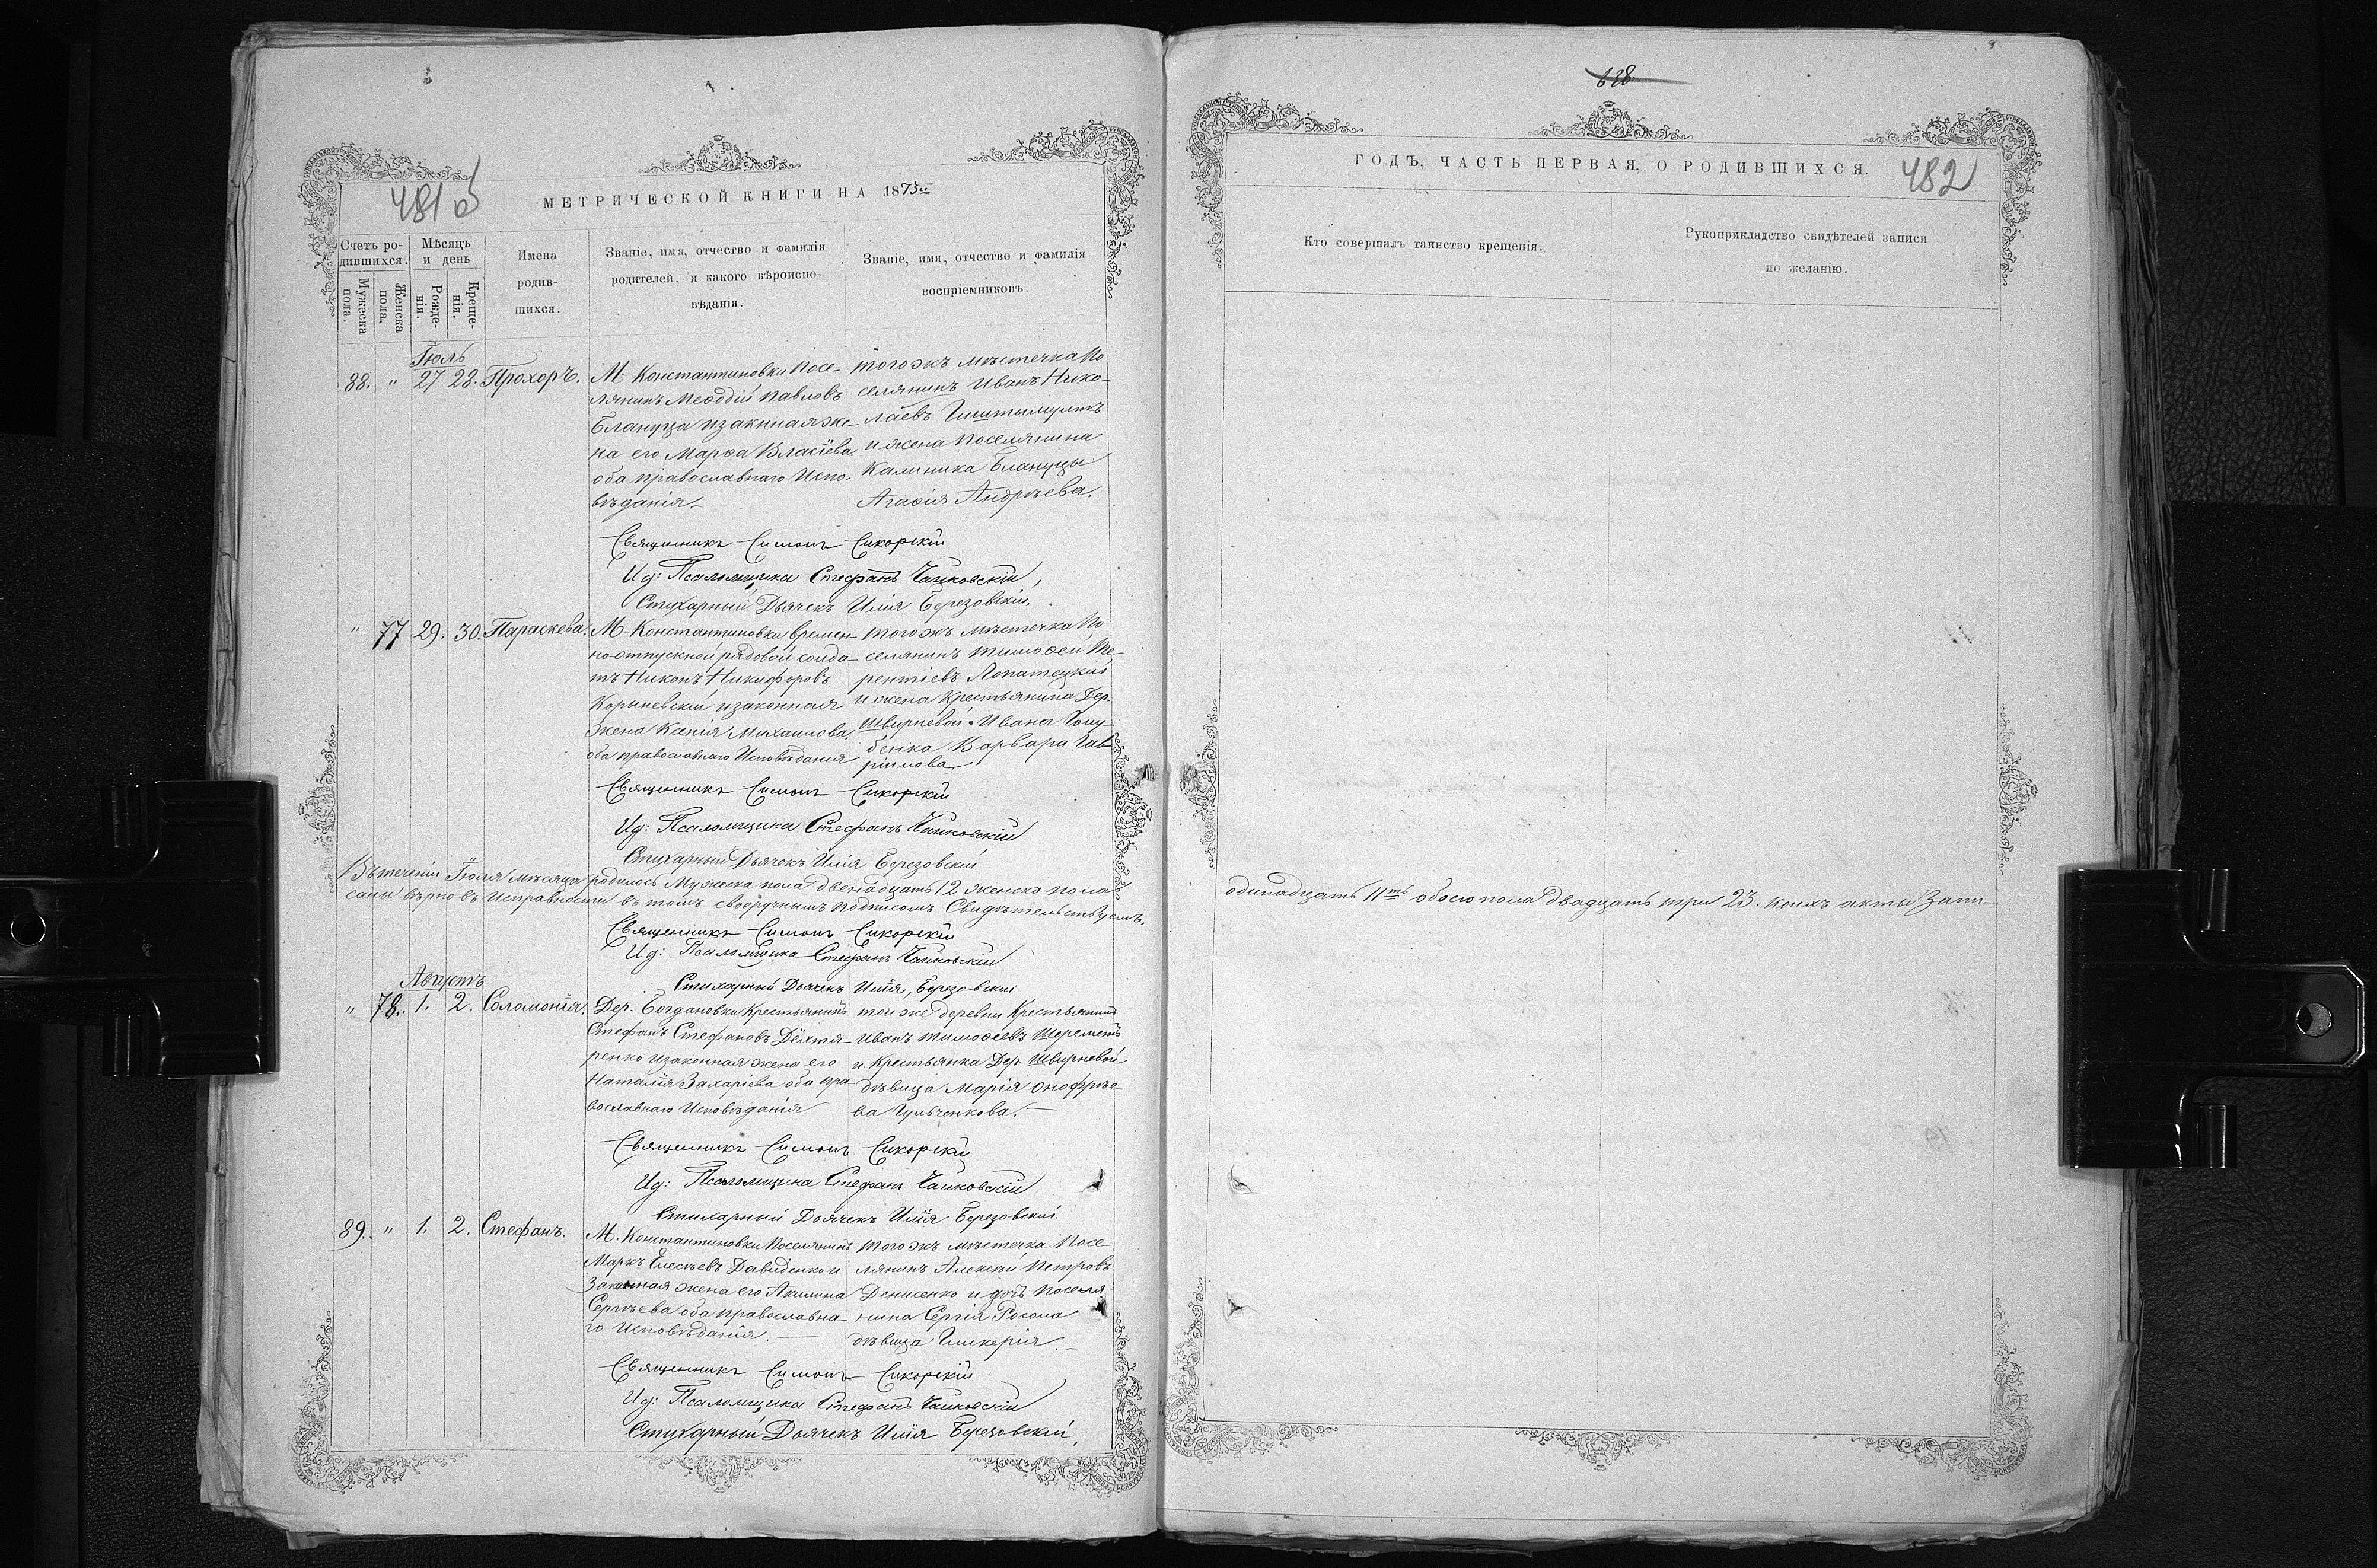 481 б
МЕТРИЧЕСКОЙ КНИГИ НА 1873й
Счетъ ро-
дившихся.
Мужеска
пола.
Женска
пола.
Мѣсяцъ
и день
Рожде-
нія.
Креще-
нія.
Имена
родив-
шихся.
Званіе, имя, отчество и фамилія
родителей, и какого вѣроиспо-
вѣданія.
Званіе, имя, отчество и фамилія
воспріемниковъ.
Іюль
88. " 27 28. Прохоръ.
М. Константиновки Посе-
лянинъ Меѳодій Павловъ
Блануца изаконная же-
на его Марѳа Власіева
оба православнаго Испо-
вѣданія.
тогожъ мѣстечка По
селянинъ Иванъ Нико-
лаевъ
и жена Поселянина
Калиника Блануцы
Агаѳія Андрѣева.
Священникъ Симонъ Сикорскій
Ид: Псаломщика Стефанъ Чайковскій,
Стихарный Дьячекъ Илія Березовскій.
" 77 29. 30. Параскева.
М. Константиновки времен-
но-отпускной рядовой солда-
тъ Никонъ Никифоровъ
Корыневскій изаконная
жена Ксенія Михаилова,
оба православнаго Исповѣданія
тогожъ мѣстечка По
селянинъ Тимоѳей Те-
рентіевъ Лопатецкій
и жена Крестьянина Дер.
Швырневой Ивана Голу-
бенка Варвара Гав-
ріилова
Священникъ Симонъ Сикорскій
Ид: Псаломщика Стефанъ Чайковскій
Стихарный Дьячекъ Илія Березовскій
Въ теченіи Іюля мѣсяца родилось Мужеска пола двенадцать 12 женска пола
сани вѣрно въ Исправности въ томъ своеручнымъ подписомъ Свидѣтельствуемъ.
Священникъ Симонъ Сикорскій
Ид: Псаломщика Стефанъ Чайковскій
Стихарный Дьячекъ Илія, Березовскій
Августъ
" 78. 1. 2. Соломонія.
Дер. Богдановки Крестьянинъ
Стефанъ Стефановъ Дёхтя-
ренко изаконная жена его
Наталія Захаріева оба пра-
вославнаго Исповѣданія
той же деревни Крестьянинъ
Иванъ Тимоѳеевъ Шереметъ
и Крестьянка Дер. Швырневой
дѣвица Марія Онофрѣе-
ва Гульченкова.
Священникъ Симонъ Сикорскій
Ид: Псаломщика Стефанъ Чайковскій
Стихарный Дьячекъ Илія Березовскій.
89. " 1. 2. Стефанъ.
М. Константиновки Поселянинъ
Маркъ Елесѣевъ Давиденко и
Законная жена его Акилина
Сергѣева оба православна-
го Исповѣданія.
тогожъ мѣстечка Посе
лянинъ Алексѣй Петровъ
Денисенко и дочь Поселя
нина Сергія Росола
дѣвица Гликерія.
Священникъ Симонъ Сикорскій
Ид: Псаломщика Стефанъ Чайковскій
Стихарный Дьячекъ Илія Березовскій,
638
ГОДЪ, ЧАСТЬ ПЕРВАЯ, О РОДИВШИХСЯ.
482
Кто совершалъ таинство крещенія.
Рукоприкладство свидѣтелей записи
по желанію.
одинадцать 11ть обоего пола двадцать три 23. коихъ акты Запи-